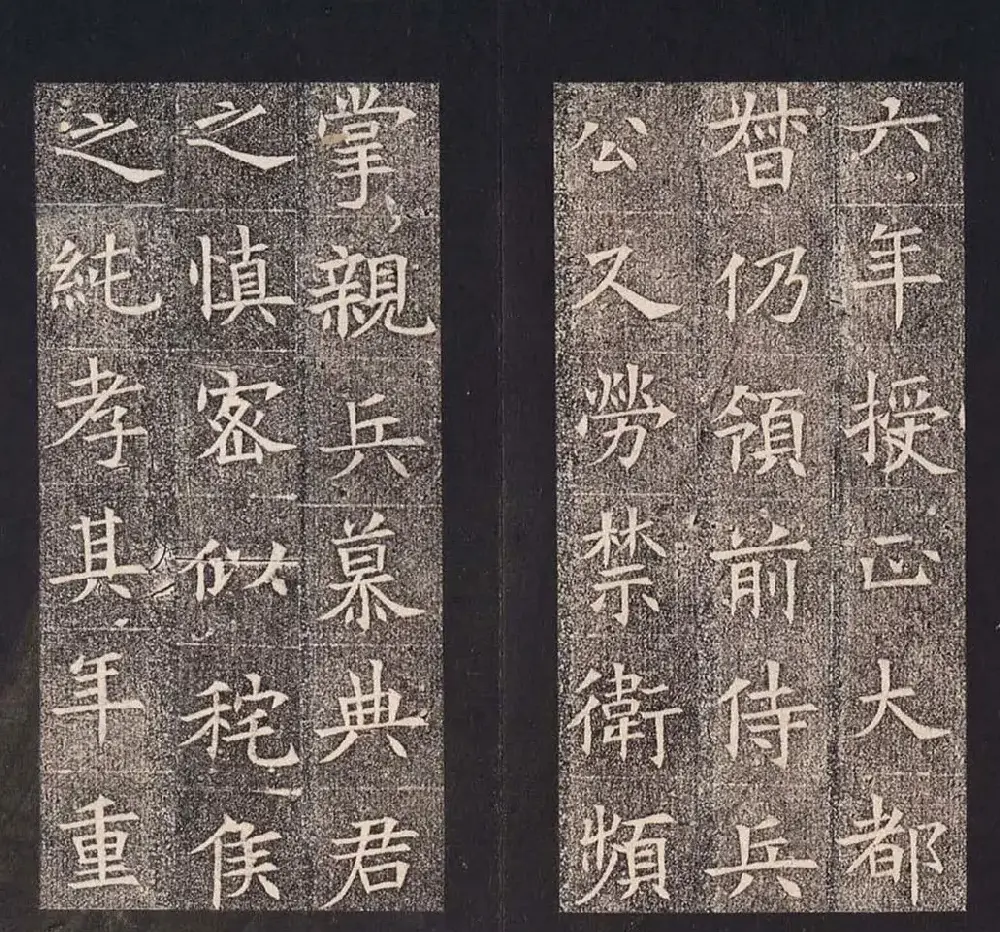 六年授正大都
督仍領前侍兵
公久勞禁衛頻
掌親兵慕典君
之慎密似秺侯
之純孝其年重